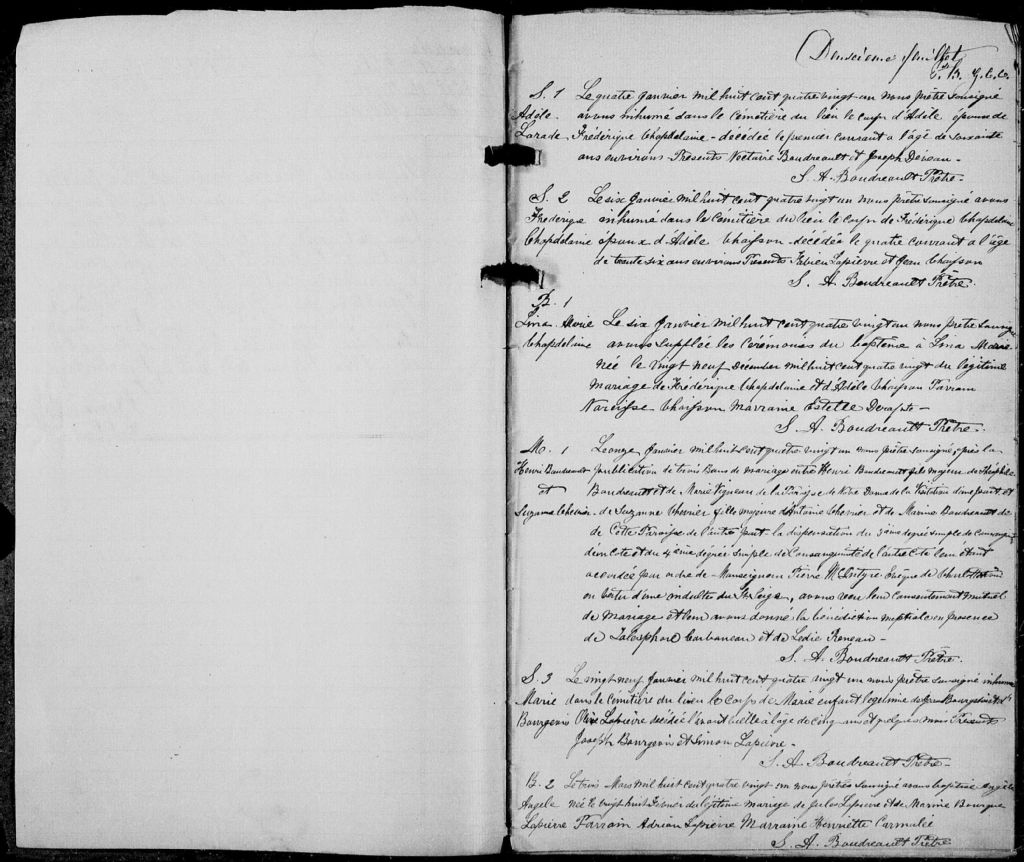 Deuxième feuillet
S. 1 Le quatre Janvier mil huit cent quatre vingt-un nous prêtre soussigné
Adèle avons inhumé dans le cémetière du lieu le corps d'Adèle épouse de
Frédérique Chapdelaine - décédée le premier courrant a l'âge de soixante
ans environs Presents Nectaire Boudreault et Joseph Deveau -
S. A. Boudreault Prêtre -
S. 2 Le six Janvier mil huit cent quatre vingt un nous prêtre soussigné avons
Frederige inhumé dans le cemitière du lieu le corps de Frédérique Chapdelaine
Chapdelaine époux d'Adèle Chaisson - décédés le quatre courrant a l'âge
de trente six ans environs Presents Fabien Lapierre et Jean Chaisson
S. A. Boudreault Prêtre.
B. 1
Lina Marie Le six Janvier mil huit cent quatre vingt un nous prêtre soussigné
Chapdelaine avons supplée les cérémonies du baptême à Lina Marie
née le vingt neuf Décember mil huit cent quatre vingt du légitime
mariage de Frédérique Chapdelaine et d'Adèle Chaisson Parrain
Narcisse Chaisson Marraine Estelle
S. A. Boudreault Prêtre.
M. 1 Le onze Janvier mil huit cent quatre vingt un nous prêtre soussigné, après la
Henri Boudreault publication de trois Bans de mariage entre Henri Boudreault fils majeur de Théophile
et Boudreault et de Marie Vigneau de la Paroisse de Notre Dame de la Visitation d'une part, et
Suzanne Chevrier - de Suzanne Chevrier fille majeure d'Antoine Chevrier et de Marine Boudreault de
de Cette Paroisse de l'autre part - la dispensation du 3ième degré simple de
d'un Coté et du 4ième degrée simple de Consanguinité de l'autre Coté leur étant
accordée par ordre de Monseigneur Pierre McIntyre Evêque de Charlottetown
en vertu d'une indulte du St. Siège, avons recu leur consentement mutuel
de Mariage et leur avons donné la bénédiction nuptiale en présence
de Telesphore Carboneau et de Ledie
S. A. Boudreault Prêtre.
S. 3 Le vingt neuf Janvier mil huit cent quatre vingt un nous prêtre soussigné inhumé
Marie dans le Cémetière du lieu le Corps de Marie enfant legitimie de Bourgeois et d'
Bourgeois Olive Lapierre décédée l'avant veille a l'age de Cinq ans et mois Presents
Joseph Bourgeois et Simon Lapierre -
S. A. Boudreault Prêtre -
B. 2 Le trois Mars mil huit cent quatre vingt un nous prêtre soussigné avons baptisé Angèle
Angele née le vingt huit Février du légitime mariage de Jules Lapierre et de Marine Bourque
Lapierre Parrain Adrien Lapierre Marraine Henriette
S. A. Boudreault Prêtre